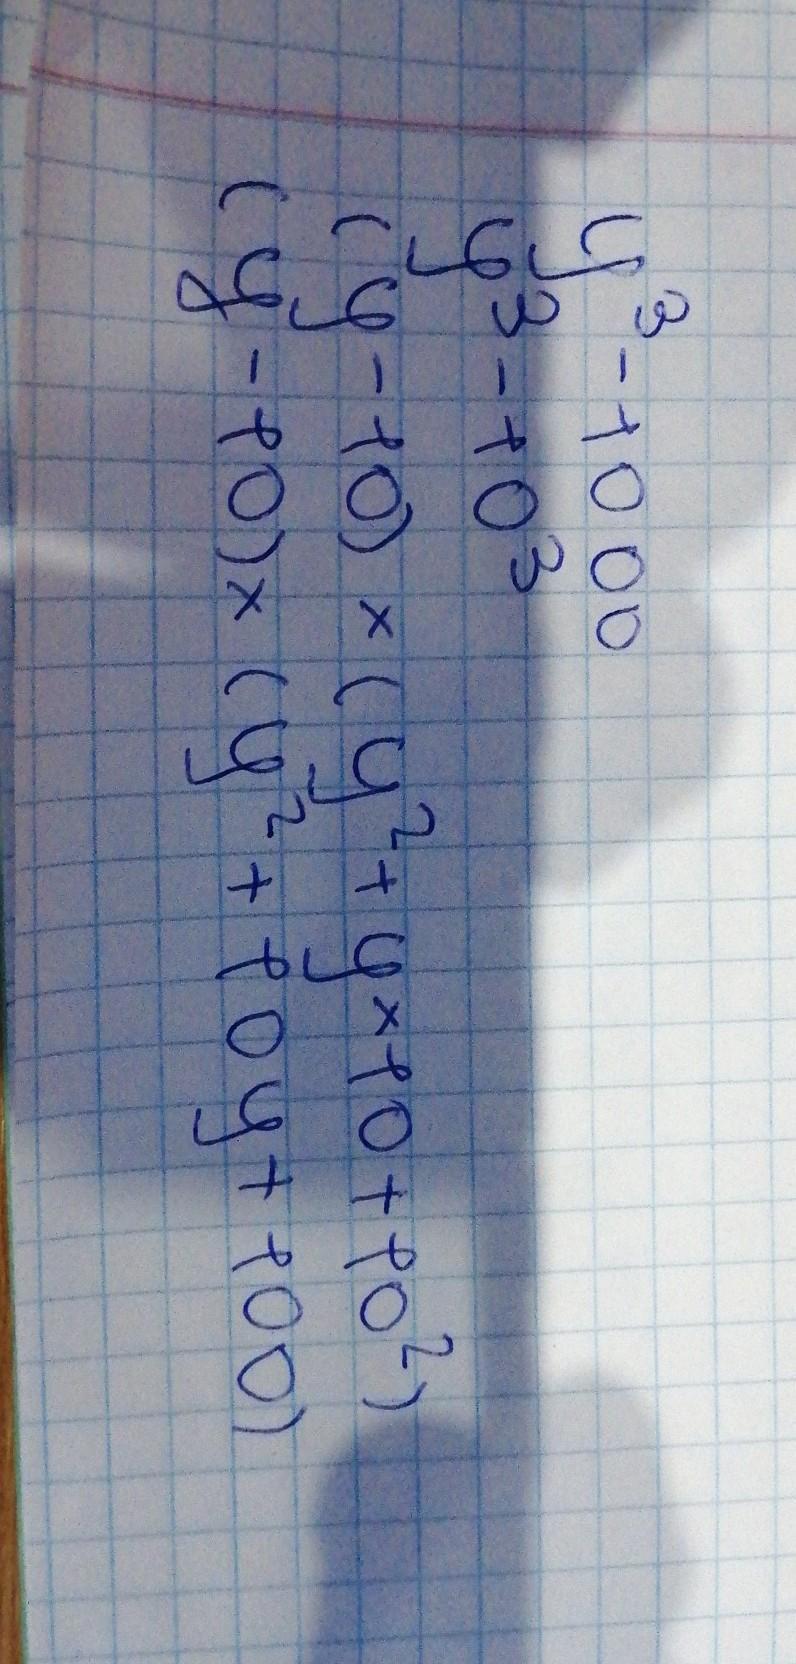 y³-1000
y³-10³
(y-10)×(y²+y×10+10²)
(y-10)×(y²+10y+100)